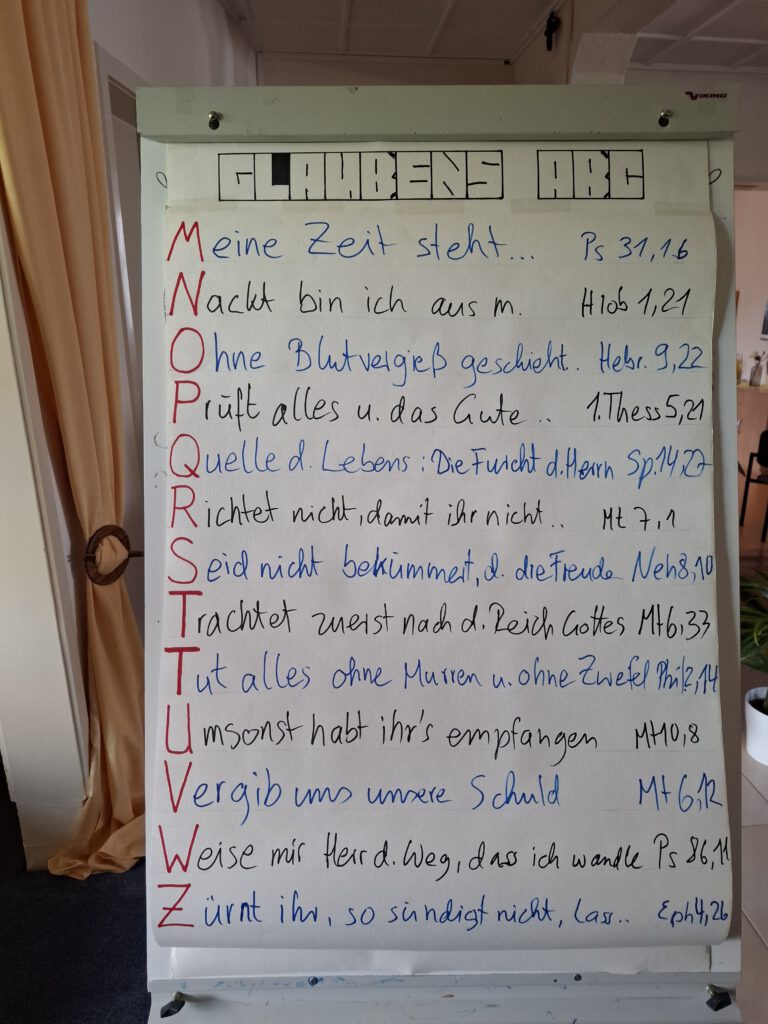 VIKING
GLAUBENS ABC
Meine Zeit steht... Ps 31,16
Nackt bin ich aus m. Hiob 1,21
Ohne Blutvergieß geschieht.. Hebr. 9,22
Prüft alles u. das Gute .. 1.Thess 5,21
Quelle d. Lebens: Die Furcht d. Herrn Sp. 14,27
Richtet nicht, damit ihr nicht.. Mt 7,1
Seid nicht bekümmert, d. die Freude Neh 8,10
Trachtet zuerst nach d. Reich Gottes Mt 6,33
Tut alles ohne Murren u. ohne Zwefel Phil 2,14
Umsonst habt ihr's empfangen Mt 10,8
Vergib uns unsere Schuld Mt 6,12
Weise mir Herr d. Weg, dass ich wandle Ps 86,11
Zürnt ihr, so sündigt nicht, lass.. Eph 4,26